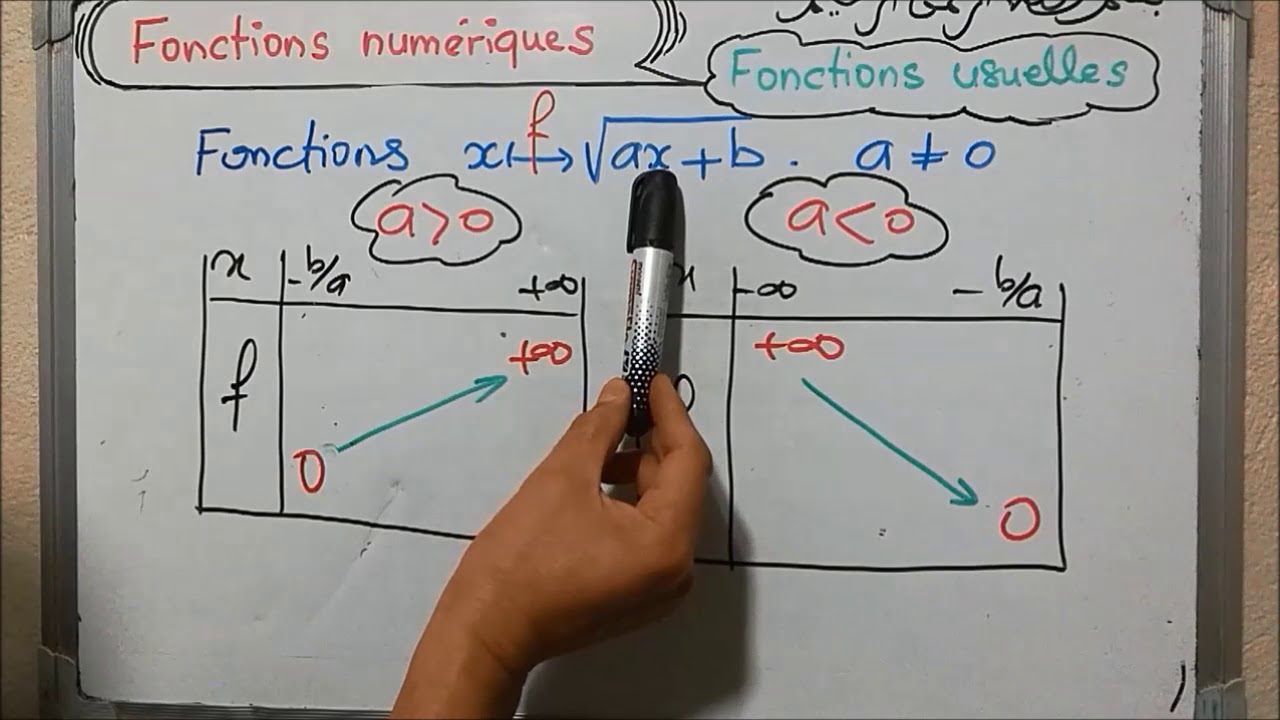 Fonctions numériques
Fonctions usuelles
f
Fonctions x ↦ √ax+b . a ≠ 0
a>0
a<0
x -b/a +∞
x -∞ -b/a
f +∞
+∞
0
0